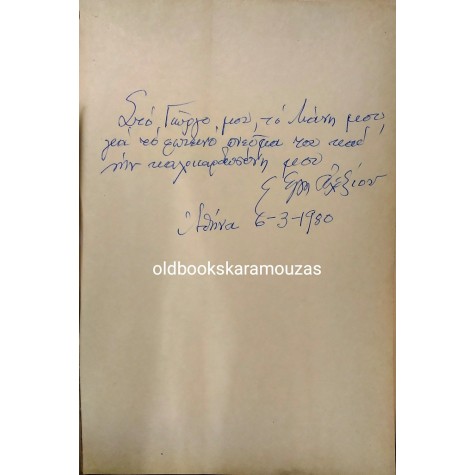 Στό Γιῶργο μου, τό Μάνη μου
γιά τό φωτεινό πνεῦμα του καί
τήν καλοκαρδοσύνη μου
Ἔλλη Ἀλεξίου
Ἀθήνα 6-3-1980
oldbookskaramouzas